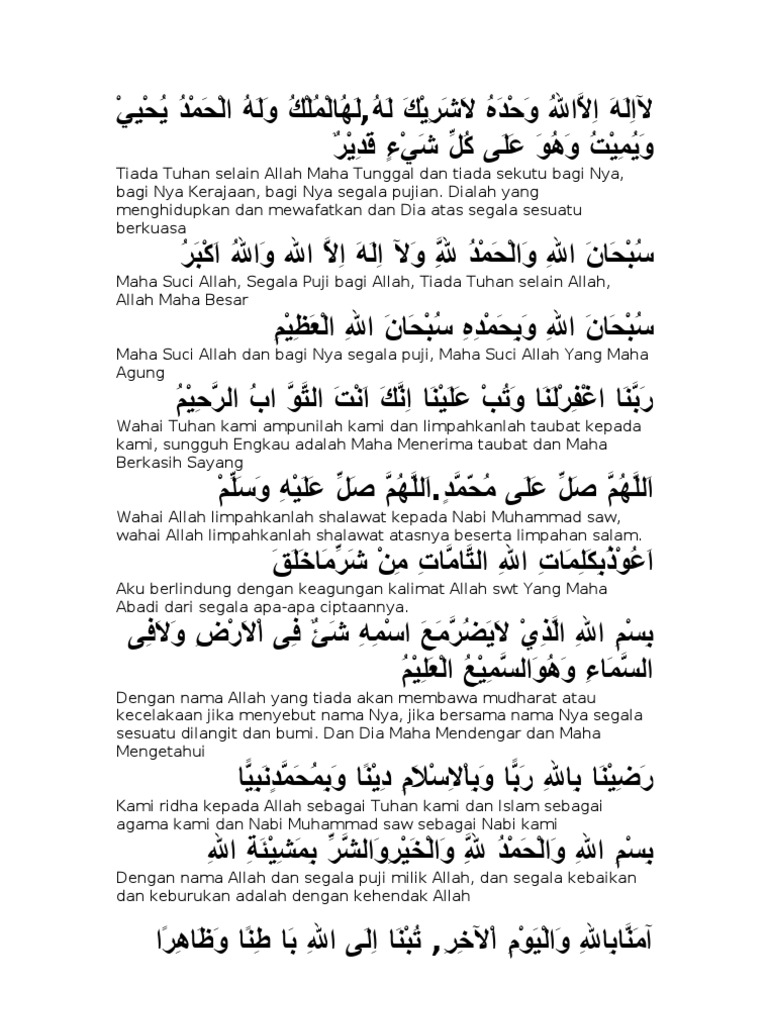 لآاِلَهَ اِلاَّاللهُ وَحْدَهُ لاَشَرِيْكَ لَهُ,لَهُالْمُلْكُ وَلَهُ الْحَمْدُ يُحْيِيْ
وَيُمِيْتُ وَهُوَ عَلَى كُلِّ شَيْءٍ قَدِيْرٌ
Tiada Tuhan selain Allah Maha Tunggal dan tiada sekutu bagi Nya,
bagi Nya Kerajaan, bagi Nya segala pujian. Dialah yang
menghidupkan dan mewafatkan dan Dia atas segala sesuatu
berkuasa
سُبْحَانَ اللهِ وَالْحَمْدُ لِلَّهِ وَلآ اِلَهَ اِلاَّ الله وَاللهُ اَكْبَرُ
Maha Suci Allah, Segala Puji bagi Allah, Tiada Tuhan selain Allah,
Allah Maha Besar
سُبْحَانَ اللهِ وَبِحَمْدِهِ سُبْحَانَ اللهِ الْعَظِيْمِ
Maha Suci Allah dan bagi Nya segala puji, Maha Suci Allah Yang Maha
Agung
رَبَّنَا اغْفِرْلَنَا وَتُبْ عَلَيْنَا اِنَّكَ اَنْتَ التَّوَّ ابُ الرَّحِيْمُ
Wahai Tuhan kami ampunilah kami dan limpahkanlah taubat kepada
kami, sungguh Engkau adalah Maha Menerima taubat dan Maha
Berkasih Sayang
اَللَّهُمَّ صَلِّ عَلَى مُحَمَّدٍ.اَللَّهُمَّ صَلِّ عَلَيْهِ وَسَلِّمْ
Wahai Allah limpahkanlah shalawat kepada Nabi Muhammad saw,
wahai Allah limpahkanlah shalawat atasnya beserta limpahan salam.
اَعُوْذُبِكَلِمَاتِ اللهِ التَّامَّاتِ مِنْ شَرِّمَاخَلَقَ
Aku berlindung dengan keagungan kalimat Allah swt Yang Maha
Abadi dari segala apa-apa ciptaannya.
بِسْمِ اللهِ الَّذِيْ لاَيَضُرُّمَعَ اسْمِهِ شَئٌ فِى اْلاَرْضِ وَلاَفِى
السَّمَاءِ وَهُوَالسَّمِيْعُ الْعَلِيْمُ
Dengan nama Allah yang tiada akan membawa mudharat atau
kecelakaan jika menyebut nama Nya, jika bersama nama Nya segala
sesuatu dilangit dan bumi. Dan Dia Maha Mendengar dan Maha
Mengetahui
رَضِيْنَا بِاللهِ رَبًّا وَبِاْلاِسْلاَمِ دِيْنًا وَبِمُحَمَّدٍنَبِيًّا
Kami ridha kepada Allah sebagai Tuhan kami dan Islam sebagai
agama kami dan Nabi Muhammad saw sebagai Nabi kami
بِسْمِ اللهِ وَالْحَمْدُ لِلَّهِ وَالْخَيْرِوَالشَّرِّ بِمَشِيْئَةِ اللهِ
Dengan nama Allah dan segala puji milik Allah, dan segala kebaikan
dan keburukan adalah dengan kehendak Allah
آمَنَّابِاللهِ وَالْيَوْمِ اْلآخِرِ, تُبْنَا اِلَى اللهِ بَا طِنًا وَظَاهِرًا